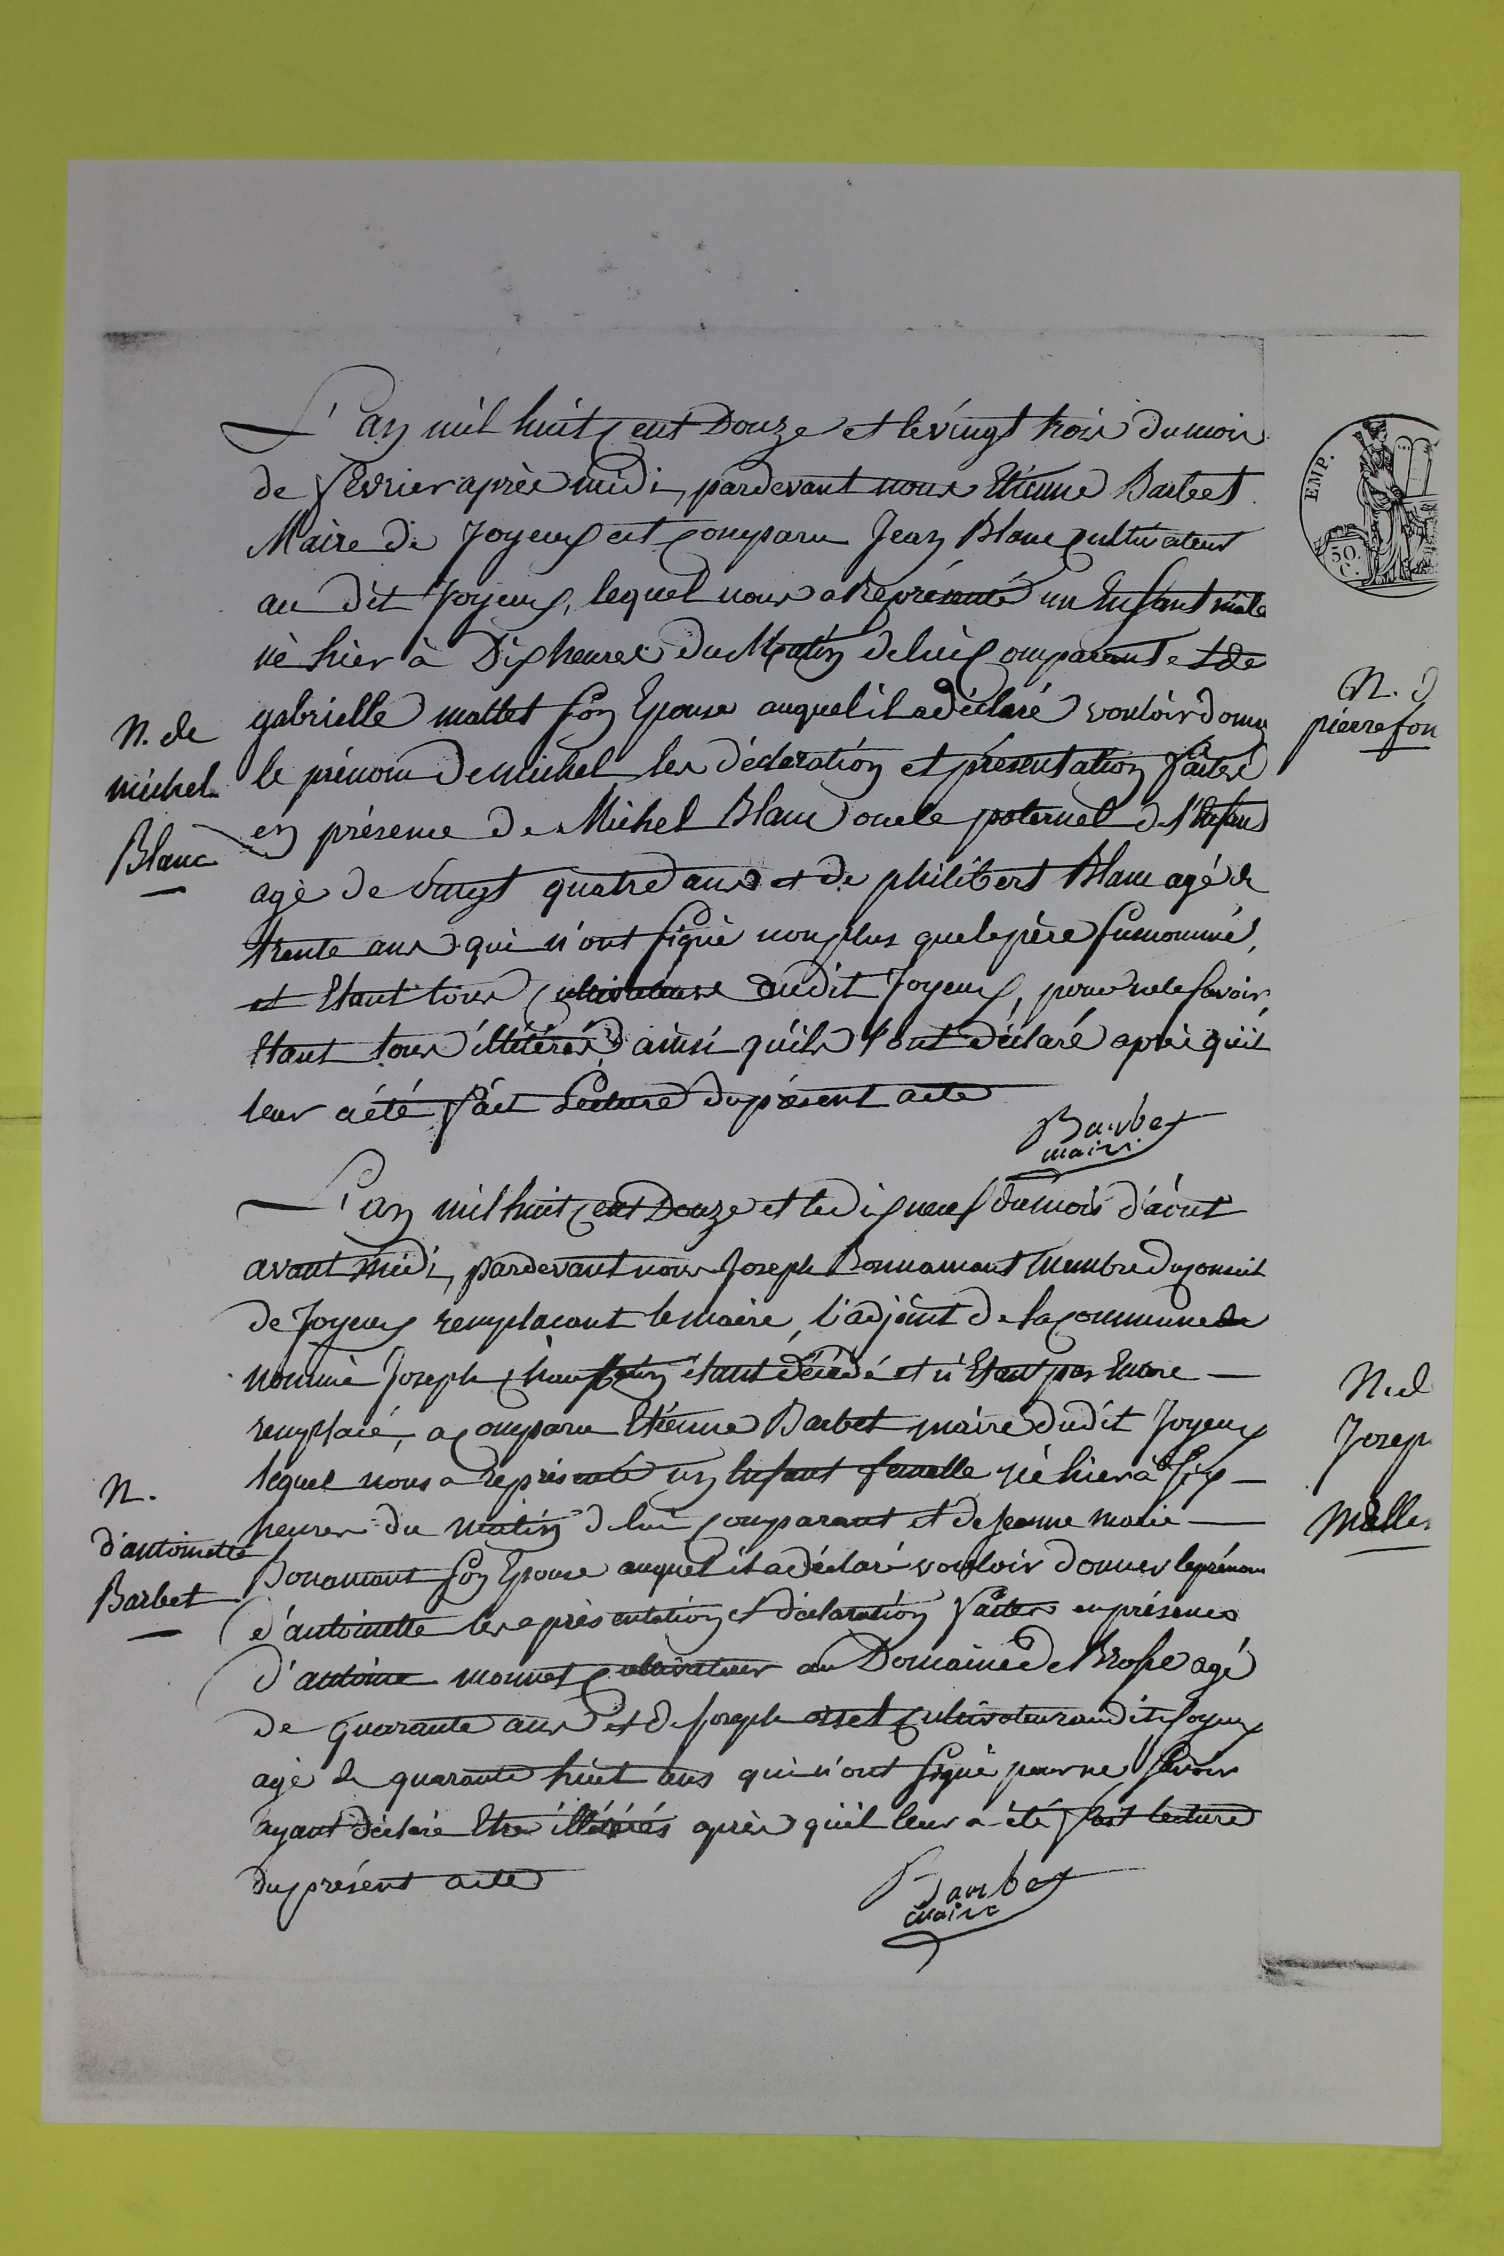 L'an mil huit cent Douze et le vingt trois du mois
de fevrier après midi, pardevant nous Etienne Barbet
Maire de Joyeux est comparu Jean Blanc cultivateur
au dit Joyeux, lequel nous a Représenté un Enfant mâle
né hier à Dix heures du Matin de lui comparant et de
gabrielle mallet son Epouse auquel il a déclaré vouloir donner
le prénom de michel les déclaration et présentation faites
en présence de Michel Blanc oncle paternel de l'Enfant
agé de vingt quatre ans et de philibert Blanc agé de
trente ans qui n'ont signé non plus que le père susnommé,
et Etant tous cultivateurs audit Joyeux, pour ne le savoir
Etant tous illitérés ainsi qu'ils l'ont déclaré après qu'il
leur a été fait Lecture du présent acte
Barbet
maire
N. de
michel
Blanc
L'an mil huit cent Douze et le dix neuf du mois d'aout
avant midi, pardevant nous Joseph Bonnamant membre du conseil
de Joyeux remplacant le maire, l'adjoint de la commune de
nommé Joseph étant décédé et n'Etant pas Encore
remplacé, a comparu Etienne Barbet maire dudit Joyeux
lequel nous a représenté un Enfant femelle né hier à six
heures du matin de lui comparant et de Jeanne marie
Bonamant son Epouse auquel il a déclaré vouloir donner le prénom
d'antoinette les présentation et déclaration faites en présence
d'antoine monnet cultivateur au Domaine de Brosse agé
de quarante ans et de Joseph cultivateur audit Joyeux
agé de quarante huit ans qui n'ont signé pour ne savoir
ayant déclaré Etre illitérés après qu'il leur a été fait lecture
du présent acte
Barbet
maire
N.
d'antoinette
Barbet
EMP.
50.
C.
N. d
pierre fon
N. d
Josep
Melle